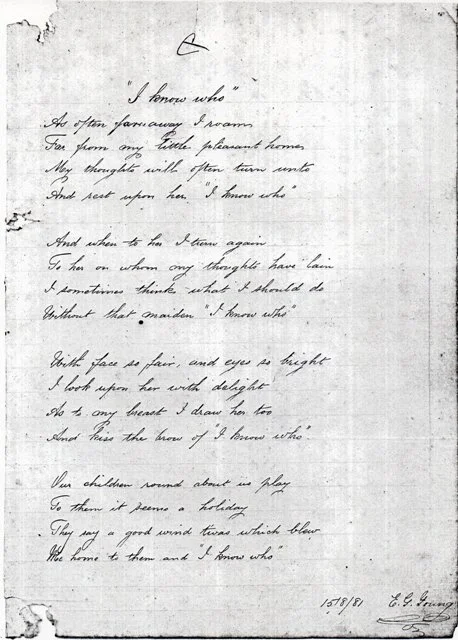 "I know who"
As often far away I roam
Far from my little pleasant home
My thoughts will often turn unto
And rest upon her "I know who"
And when to her I turn again
To her on whom my thoughts have lain
I sometimes think what I should do
Without that maiden "I know who"
With face so fair, and eyes so bright
I look upon her with delight
As to my breast I draw her too
And kiss the brow of "I know who".
Our children round about us play
To them it seems a holiday
They say a good wind twas which blew
Me home to them and "I know who"
15/8/81 E. G. Young